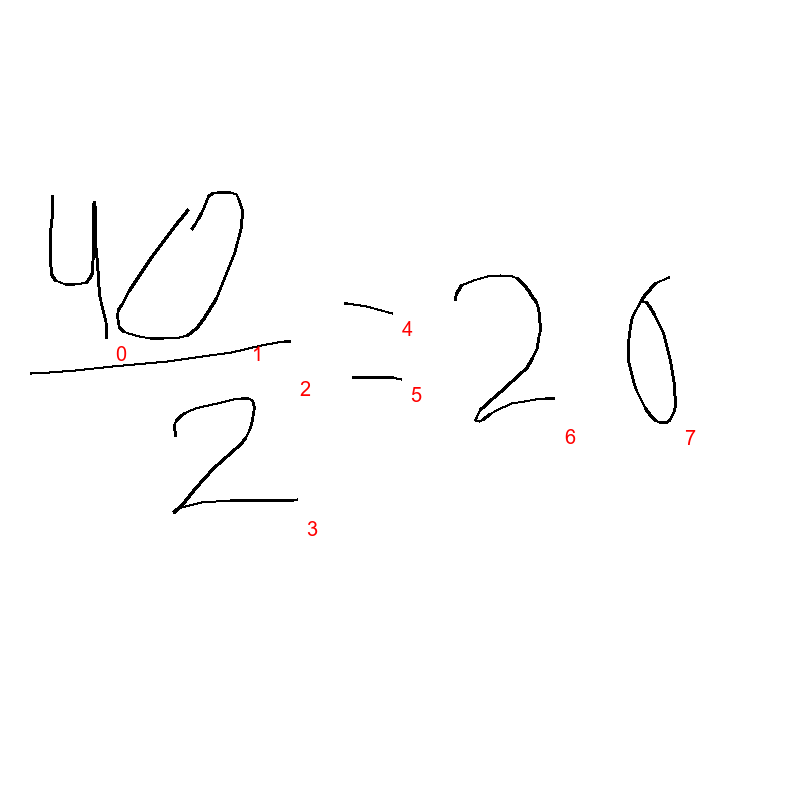 40
2
= 20
0
1
2
3
4
5
6
7